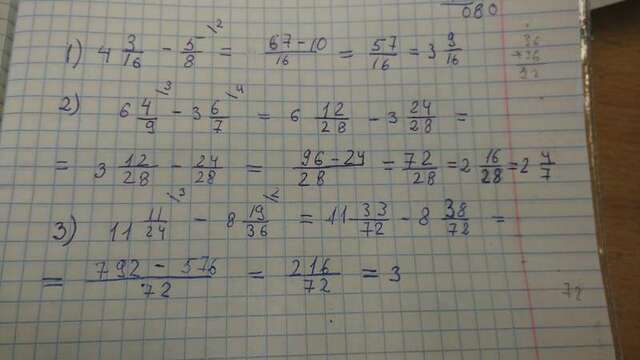 080
1) 4 3/16 - 5/8 \2 = 67-10/16 = 57/16 = 3 9/16
36
+36
92
2) 6 4/9 \3 - 3 6/7 \4 = 6 12/28 - 3 24/28 =
= 3 12/28 - 24/28 = 96-24/28 = 72/28 = 2 16/28 = 2 4/7
3) 11 11/24 \3 - 8 19/36 \2 = 11 33/72 - 8 38/72 =
= 792-576/72 = 216/72 = 3
72